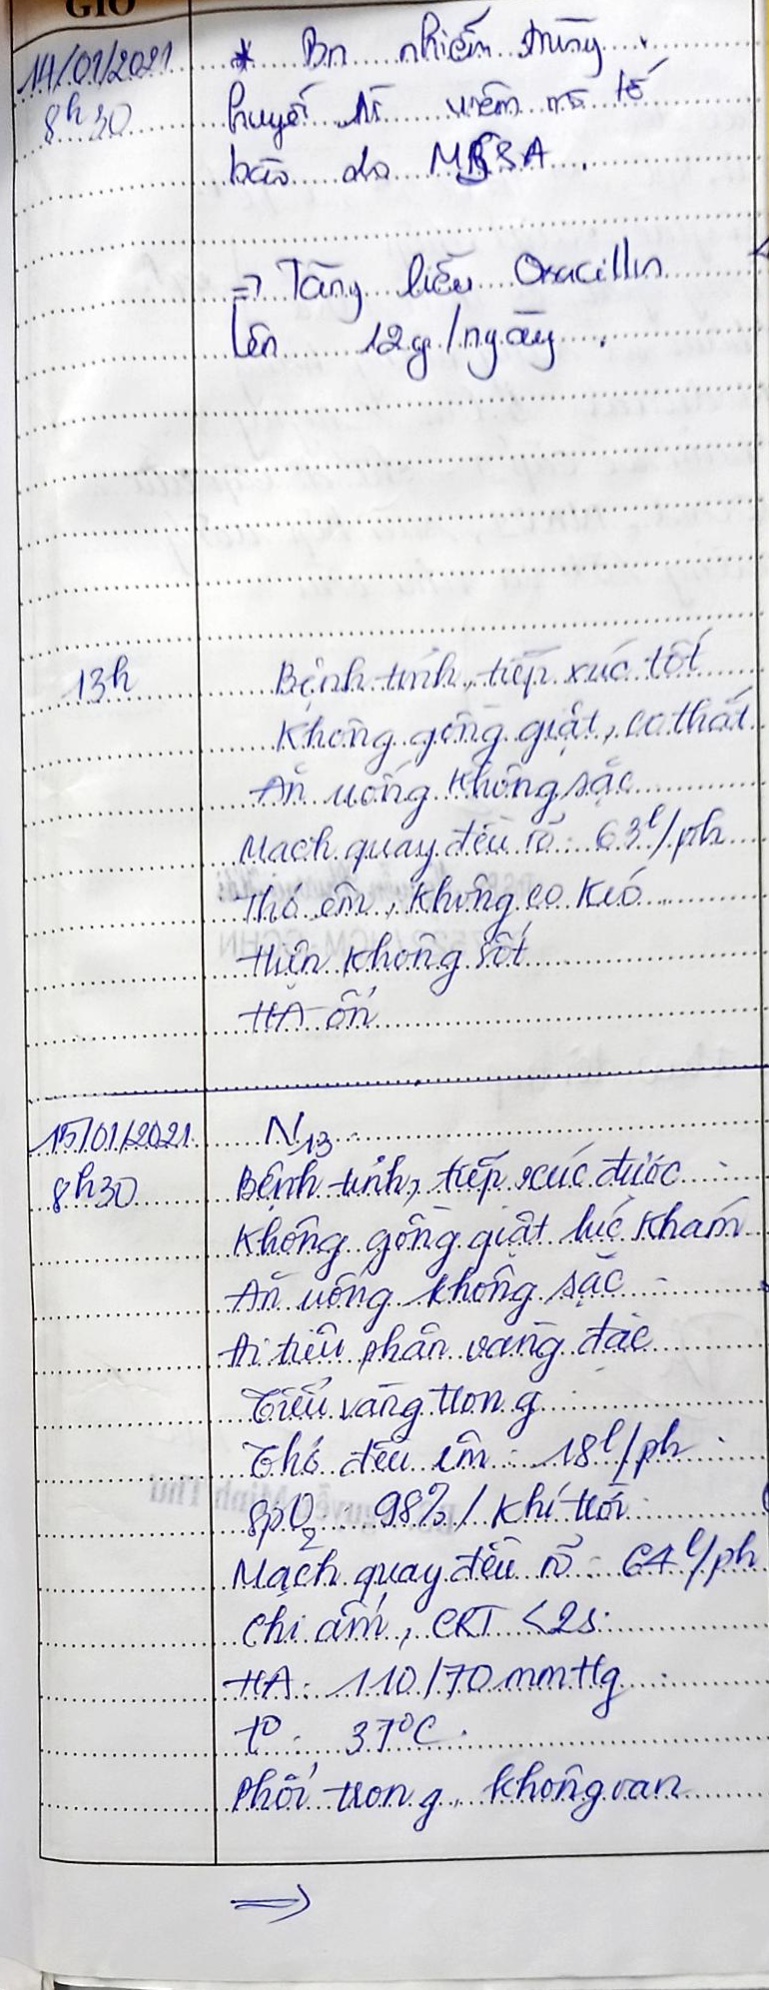 GIỜ
14/01/2021
8h30
* Bn nhiễm trùng
huyết từ viêm mô tế
bào do MSSA.
=> Tăng liều Oxacillin
lên 12g/ngày.
13h
Bệnh tỉnh, tiếp xúc tốt
Không gồng giật, co thắt
Ăn uống không sặc
Mạch quay đều rõ: 63 l/ph
Thở êm, không co kéo
Hiện không sốt
HA ổn
15/01/2021
8h30
N13
Bệnh tỉnh, tiếp xúc được
Không gồng giật lúc khám
Ăn uống không sặc
Đi tiêu phân vàng đặc
Tiểu vàng trong
Thở đều êm: 18 l/ph
SpO2: 98% / khí trời
Mạch quay đều rõ: 64 l/ph
Chi ấm, CRT <2s.
HA: 110/70 mmHg
t°: 37°C.
Phổi trong, không ran
=>